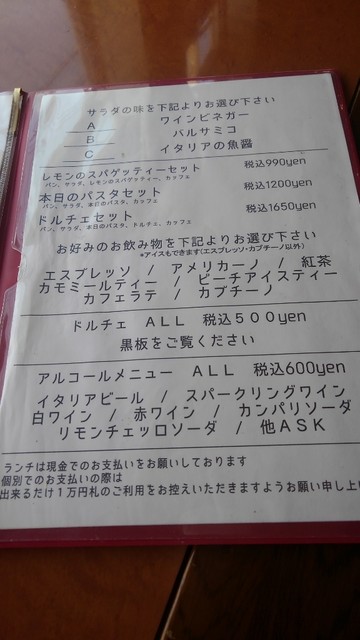 サラダの味を下記よりお選び下さい
A ワインビネガー
B バルサミコ
C イタリアの魚醤
レモンのスパゲッティーセット 税込990yen
パン、サラダ、レモンのスパゲッティー、カッフェ
本日のパスタセット 税込1200yen
パン、サラダ、本日のパスタ、カッフェ
ドルチェセット 税込1650yen
パン、サラダ、本日のパスタ、ドルチェ、カッフェ
お好みのお飲み物を下記よりお選び下さい
*アイスもできます(エスプレッソ・カプチーノ以外)
エスプレッソ / アメリカーノ / 紅茶
カモミールティー / ピーチアイスティー
カフェラテ / カプチーノ
ドルチェ ALL 税込500yen
黒板をご覧ください
アルコールメニュー ALL 税込600yen
イタリアビール / スパークリングワイン
白ワイン / 赤ワイン / カンパリソーダ
リモンチェッロソーダ / 他ASK
ランチは現金でのお支払いをお願いしております
個別でのお支払いの際は
出来るだけ1万円札のご利用をお控えいただきますようお願い申し上